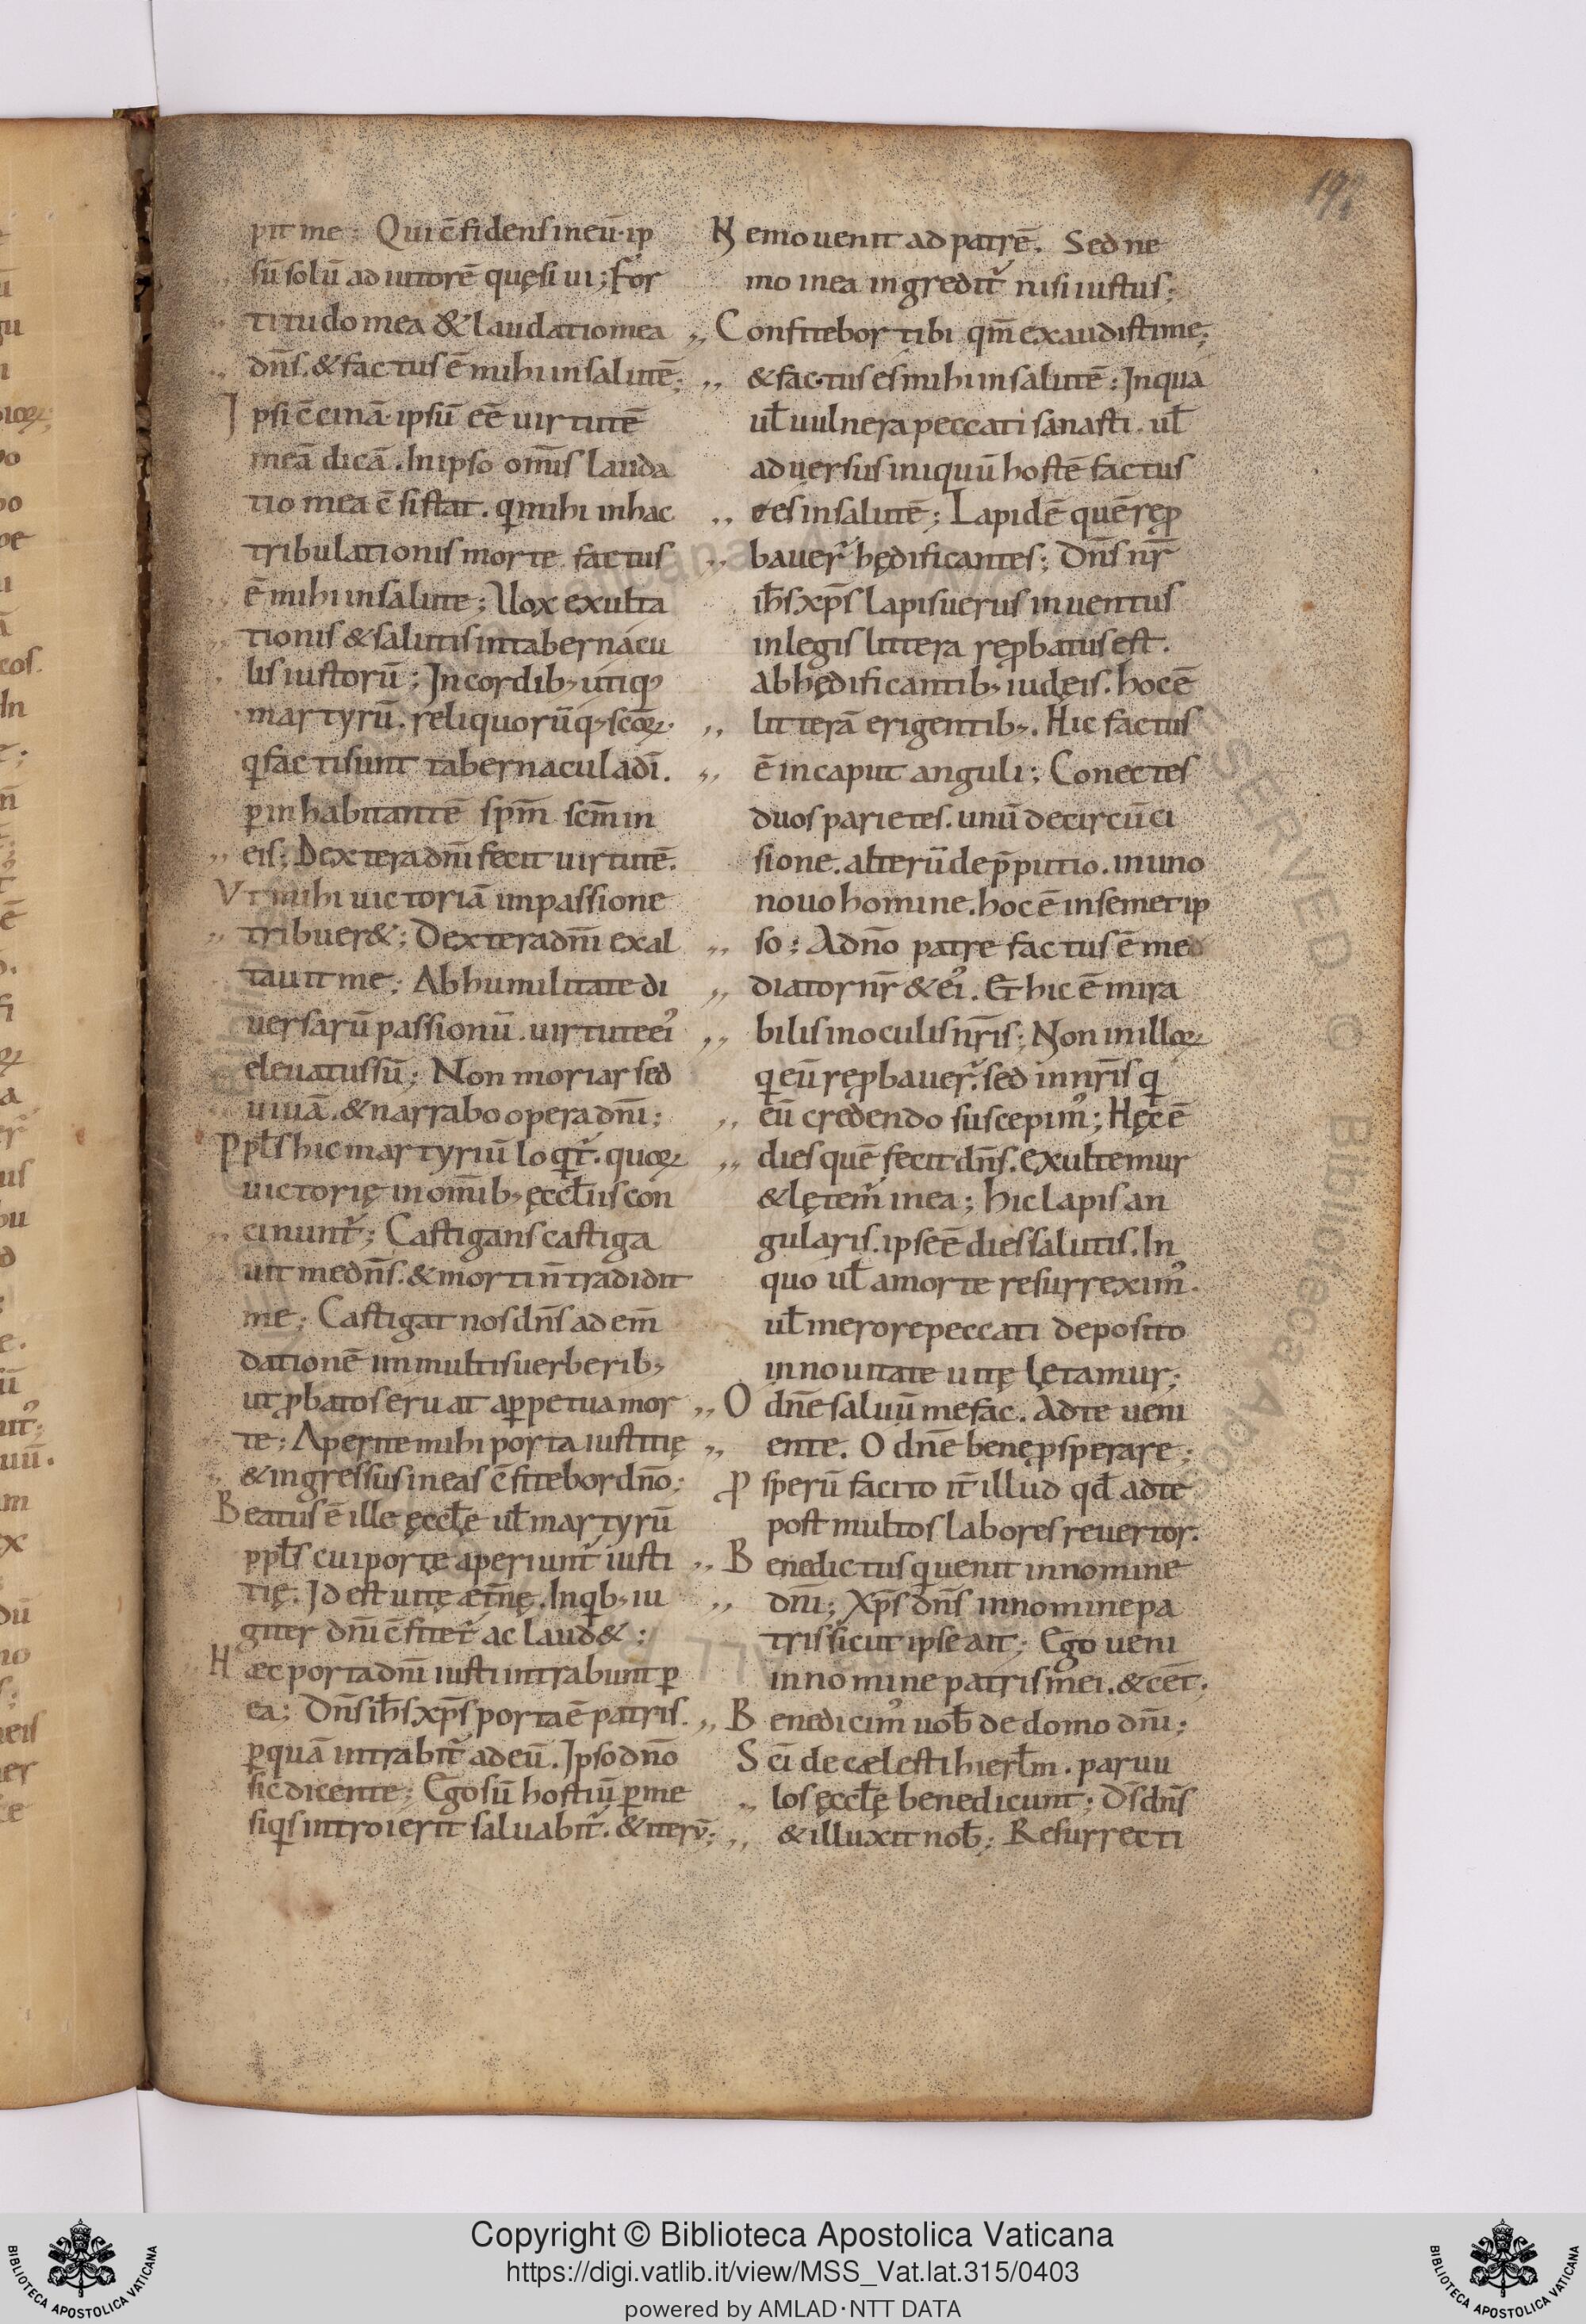 192
pit me; Qui c̄fidens in eū. ip
sū solū adiutorē quęsiui; For
titudo mea & laudatio mea
dn̄s. & factus ē mihi in salutē;
Ipsi c̄cinā. ipsū eē uirtutē
meā dicā. In ipso om̄is lauda
tio mea c̄sistat. qi mihi in hac
tribulationis morte factus
ē mihi in salute; Uox exulta
tionis & salutis in tabernacu
lis iustorū; In cordib; utiqꝫ
martyrū. reliquorūq; sc̄oꝝ.
qi facti sunt tabernacula dī.
ꝑ inhabitantē spm̄ scm̄ in
eis; Dextera dn̄i fecit uirtutē.
Vt mihi uictoriā in passione
tribuer&; Dextera dn̄i exal
tauit me; Ab humilitate di
uersarū passionū. uirtute ei᾽
eleuatus sū; Non moriar sed
uiuā. & narrabo opera dn̄i;
Ppl̄s hic martyriū loqit᾽. quoꝝ
uictorię in om̄ib; ęccl̄iis con
cinunt᾽; Castigans castiga
uit me dn̄s. & morti n̄ tradidit
me; Castigat nos dn̄s ad em̄
dationē in multis uerberib;
ut ꝓbatos eruat a ꝑpetua mor
te; Aperite mihi porta iustitię
& ingressus in eas c̄fitebor dn̄o;
Beatus ē ille ęccl̄ę ul̄ martyrū
ppl̄s cui portę aperiunt᾽ iusti
tię. Id est uitę ætn̄ę. In qib; iu
giter dn̄i c̄fitet᾽ ac laud&;
Hæc porta dn̄i iusti intrabunt ꝑ
ea; Dn̄s ih̄s xp̄s porta ē patris.
ꝑ quā intrabit᾽ ad eū. Ipso dn̄o
sic dicente; Ego sū hostiū ꝑ me
siqis introierit saluabit᾽. & iterū;
Nemo uenit ad patrē. Sed ne
mo in ea ingredit᾽ nisi iustus;
Confitebor tibi qm̄ exaudisti me;
& factus es mihi in salutē; In qua
ul̄ uulnera peccati sanasti. ul̄
aduersus iniquū hostē factus
es in salutē; Lapidē quē reꝓ
bauer᾽ hędificantes; Dn̄s nr̄
ih̄s xp̄s lapis uerus inuentus
in legis littera reꝓbatus est.
ab hędificantib; iudęis. hoc ē
litterā erigentib;. Hic factus
ē in caput anguli; Conectes
duos parietes. unū de circūci
sione. alterū de p̄putio. in uno
nouo homine. hoc ē in semet ip
so; A dn̄o patre factus ē me
diator nr̄ & ei᾽. Et hic ē mira
bilis in oculis nr̄is; Non in illoꝝ
qi eū reꝓbauer᾽. sed in nr̄is qi
eū credendo suscepim᾽; Hęc ē
dies quē fecit dn̄s. exultemur
& lętem᾽ in ea; hic lapis an
gularis. ipse ē dies salutis. In
quo ul̄ a morte resurrexim᾽.
ul̄ merore peccati deposito
in nouitate uitę lętamur;
O dn̄e saluū me fac. Ad te ueni
ente. O dn̄e bene ꝓsperare;
Ꝓsperū facito it᾽ illud qd̄ ad te
post multos labores reuertor.
Benedictus qi uenit in nomine
dn̄i; Xp̄s dn̄s in nomine pa
tris sicut ipse ait; Ego ueni
in nomine patris mei. & cet̄;
Benedicim᾽ uob̄ de domo dn̄i;
Sc̄i de cælesti hierl̄m. paruu
los ęccl̄ę benedicunt; Ds̄ dn̄s
& illuxit nob̄; Resurrecti
Copyright © Biblioteca Apostolica Vaticana
https://digi.vatlib.it/view/MSS_Vat.lat.315/0403
powered by AMLAD·NTT DATA
BIBLIOTECA APOSTOLICA VATICANA
BIBLIOTECA APOSTOLICA VATICANA